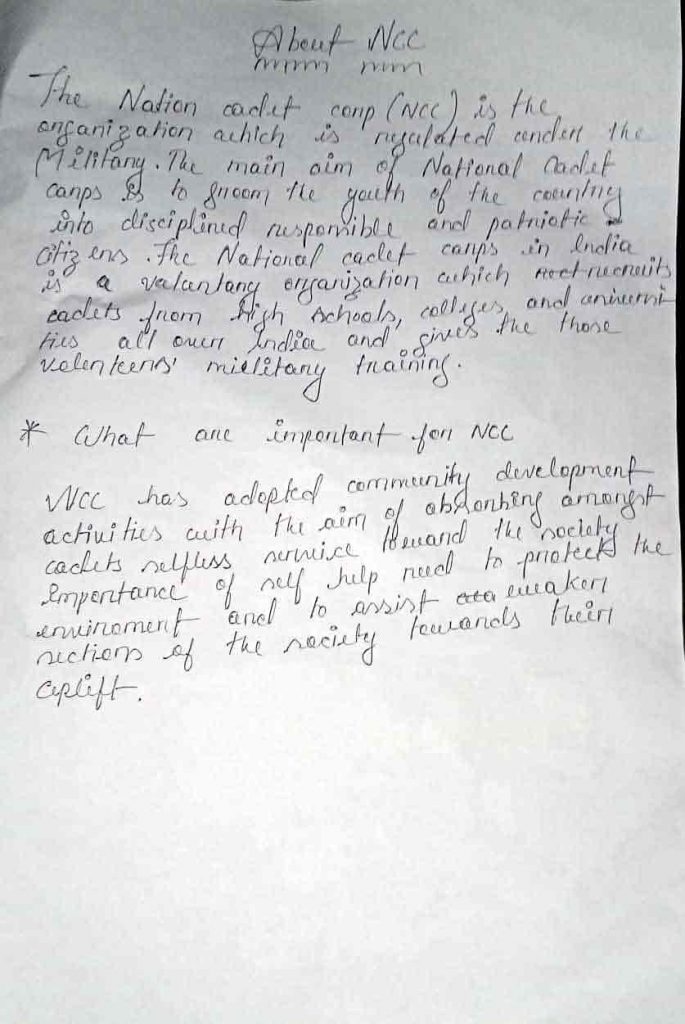 About NCC
The Nation cadet corp (NCC) is the
organization which is regulated under the
Military. The main aim of National Cadet
corps is to groom the youth of the country
into disciplined responsible and patriotic
citizens. The National cadet corps in India
is a voluntary organization which recruits
cadets from High schools, colleges, and universi
ties all over India and gives the those
volenteers' mielitary training.
* What are important for NCC
NCC has adopted community development
activities with the aim of absorbing amongst
cadets selfless service toward the society
importance of self help need to protect the
enviroment and to assist weaker
sections of the society towards their
uplift.